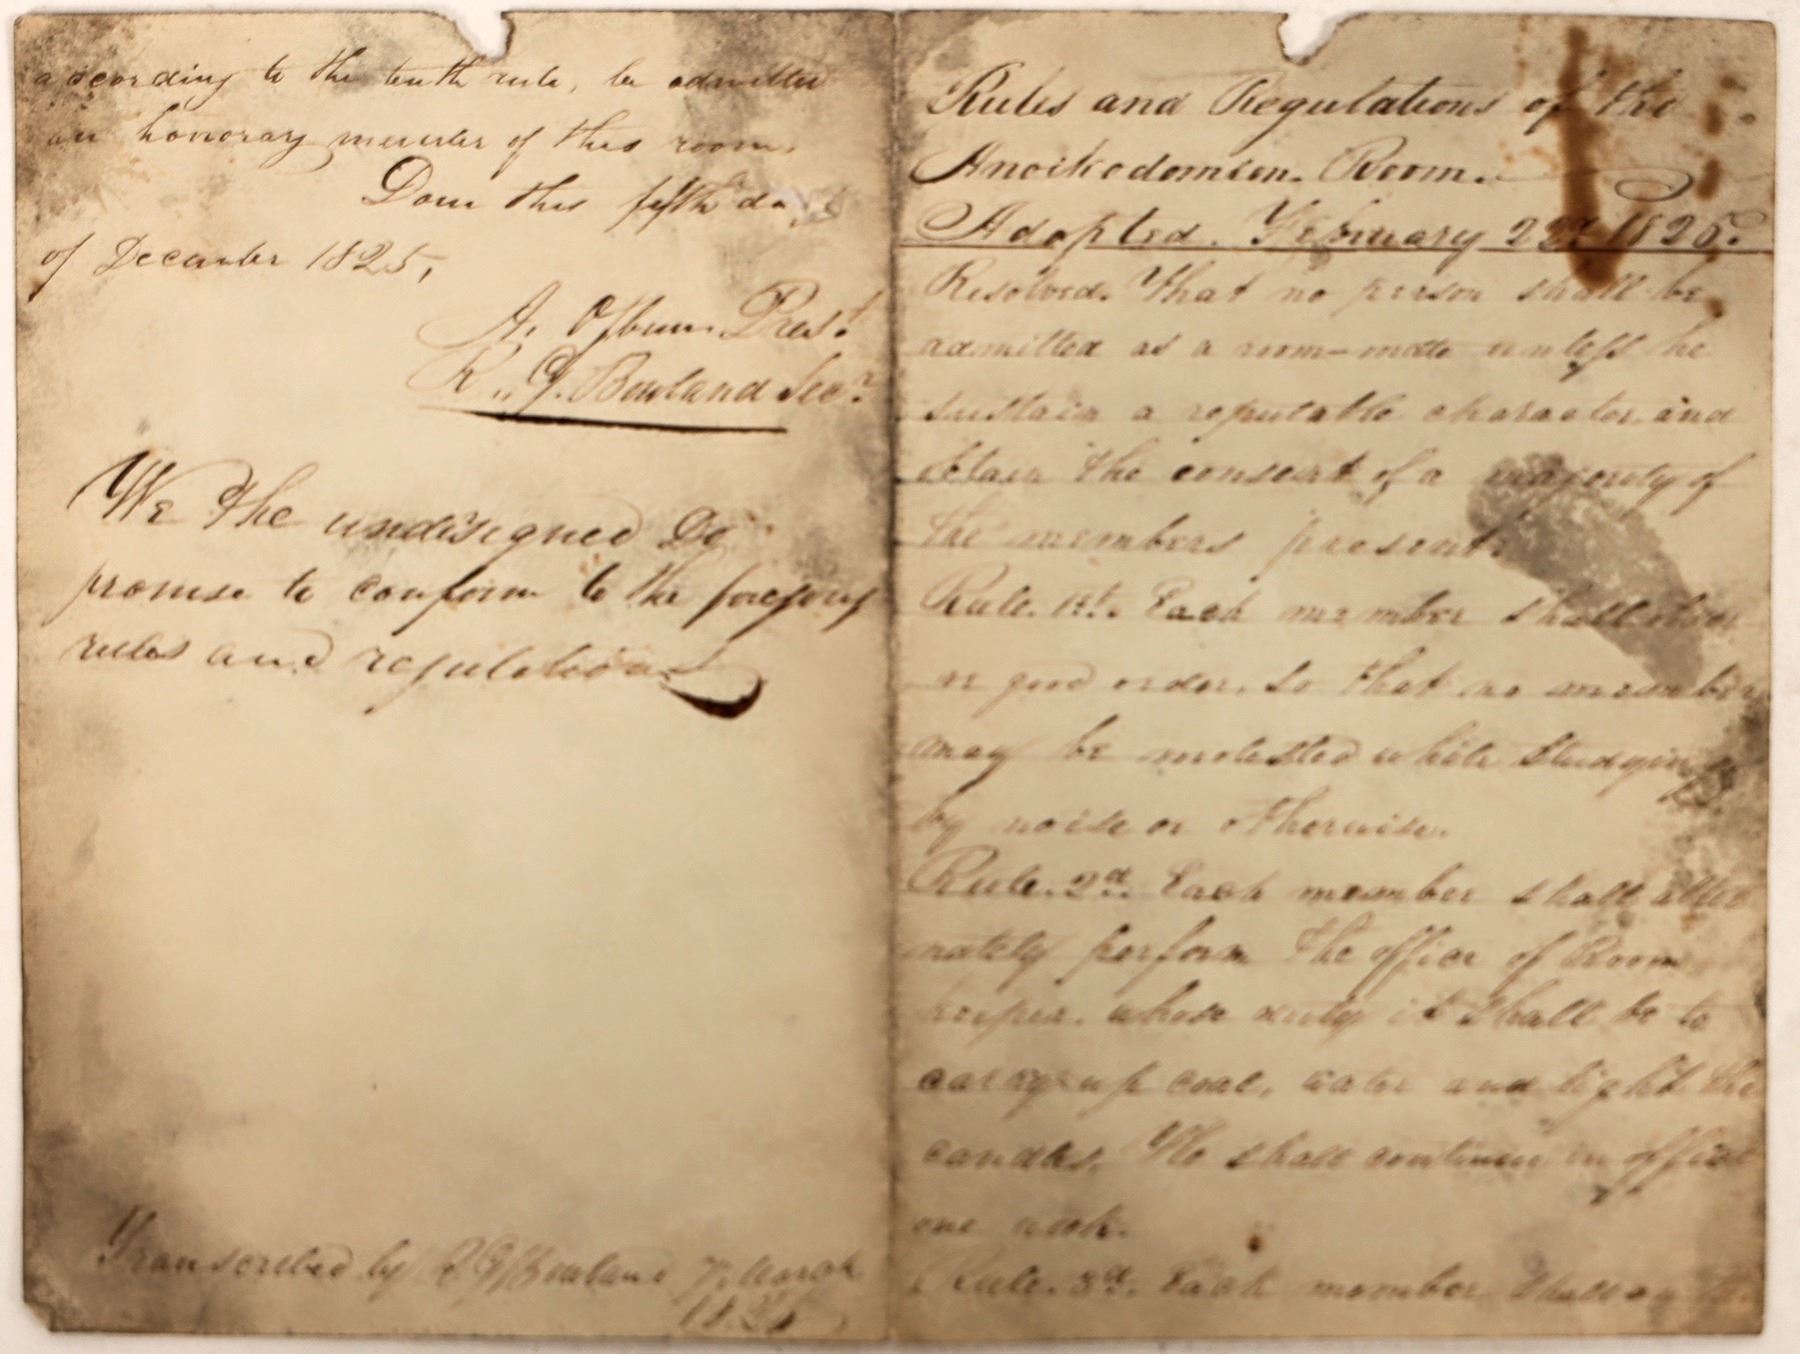 according to the tenth rule, be admitted
an honorary member of this room.
Done this fifth day
of December 1825,
A. Osburn Prest
R. G. Bowland Secr
We the undisigned Do
promise to conform to the foregoing
rules and regulations
Transcribed by R G Bowland March
182
Rules and Regulations of the
Anoikodomeen. Room.
Adopted. February 22d. 1825.
Resolved. That no person shall be
admitted as a room-mate unless he
sustain a reputable character and
obtain the consent of a majority of
the members present.
Rule. 1st. Each member shall
in good order. So that no member
may be molested while studying
by noise or otherwise.
Rule. 2d. Each member shall alter
nately perform the office of Room
keeper. whose duty it shall be to
carry up coal, water and light the
candles. He shall continue in office
one week.
Rule. 3d. Each member shall